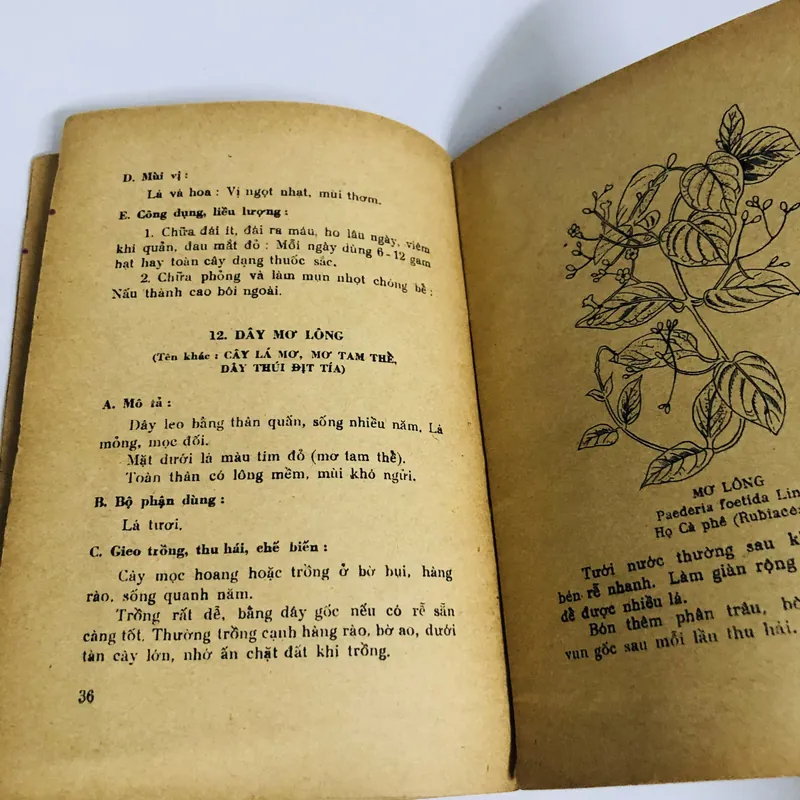 D. Mùi vị :
Lá và hoa : Vị ngọt nhạt, mùi thơm.
E. Công dụng, liều lượng :
1. Chữa đái ít, đái ra máu, ho lâu ngày, viêm
khí quản, đau mắt đỏ : Mỗi ngày dùng 6 - 12 gam
hạt hay toàn cây dạng thuốc sắc.
2. Chữa phỏng và làm mụn nhọt chóng bể :
Nấu thành cao bôi ngoài.
12. DÂY MƠ LÔNG
(Tên khác : CÂY LÁ MƠ, MƠ TAM THỂ,
DÂY THÚI ĐỊT TÍA)
A. Mô tả :
Dây leo bằng thân quấn, sống nhiều năm. Lá
mỏng, mọc đối.
Mặt dưới lá màu tím đỏ (mơ tam thể).
Toàn thân có lông mềm, mùi khó ngửi.
B. Bộ phận dùng :
Lá tươi.
C. Gieo trồng, thu hái, chế biến :
Cây mọc hoang hoặc trồng ở bờ bụi, hàng
rào, sống quanh năm.
Trồng rất dễ, bằng dây gốc nếu có rễ sẵn
càng tốt. Thường trồng cạnh hàng rào, bờ ao, dưới
tàn cây lớn, nhớ ấn chặt đất khi trồng.
36
MƠ LÔNG
Paederia foetida Lin
Họ Cà phê (Rubiace
Tưới nước thường sau k
bén rễ nhanh. Làm giàn rộng
để được nhiều lá.
Bón thêm phân trâu, b
vun gốc sau mỗi lần thu hái.